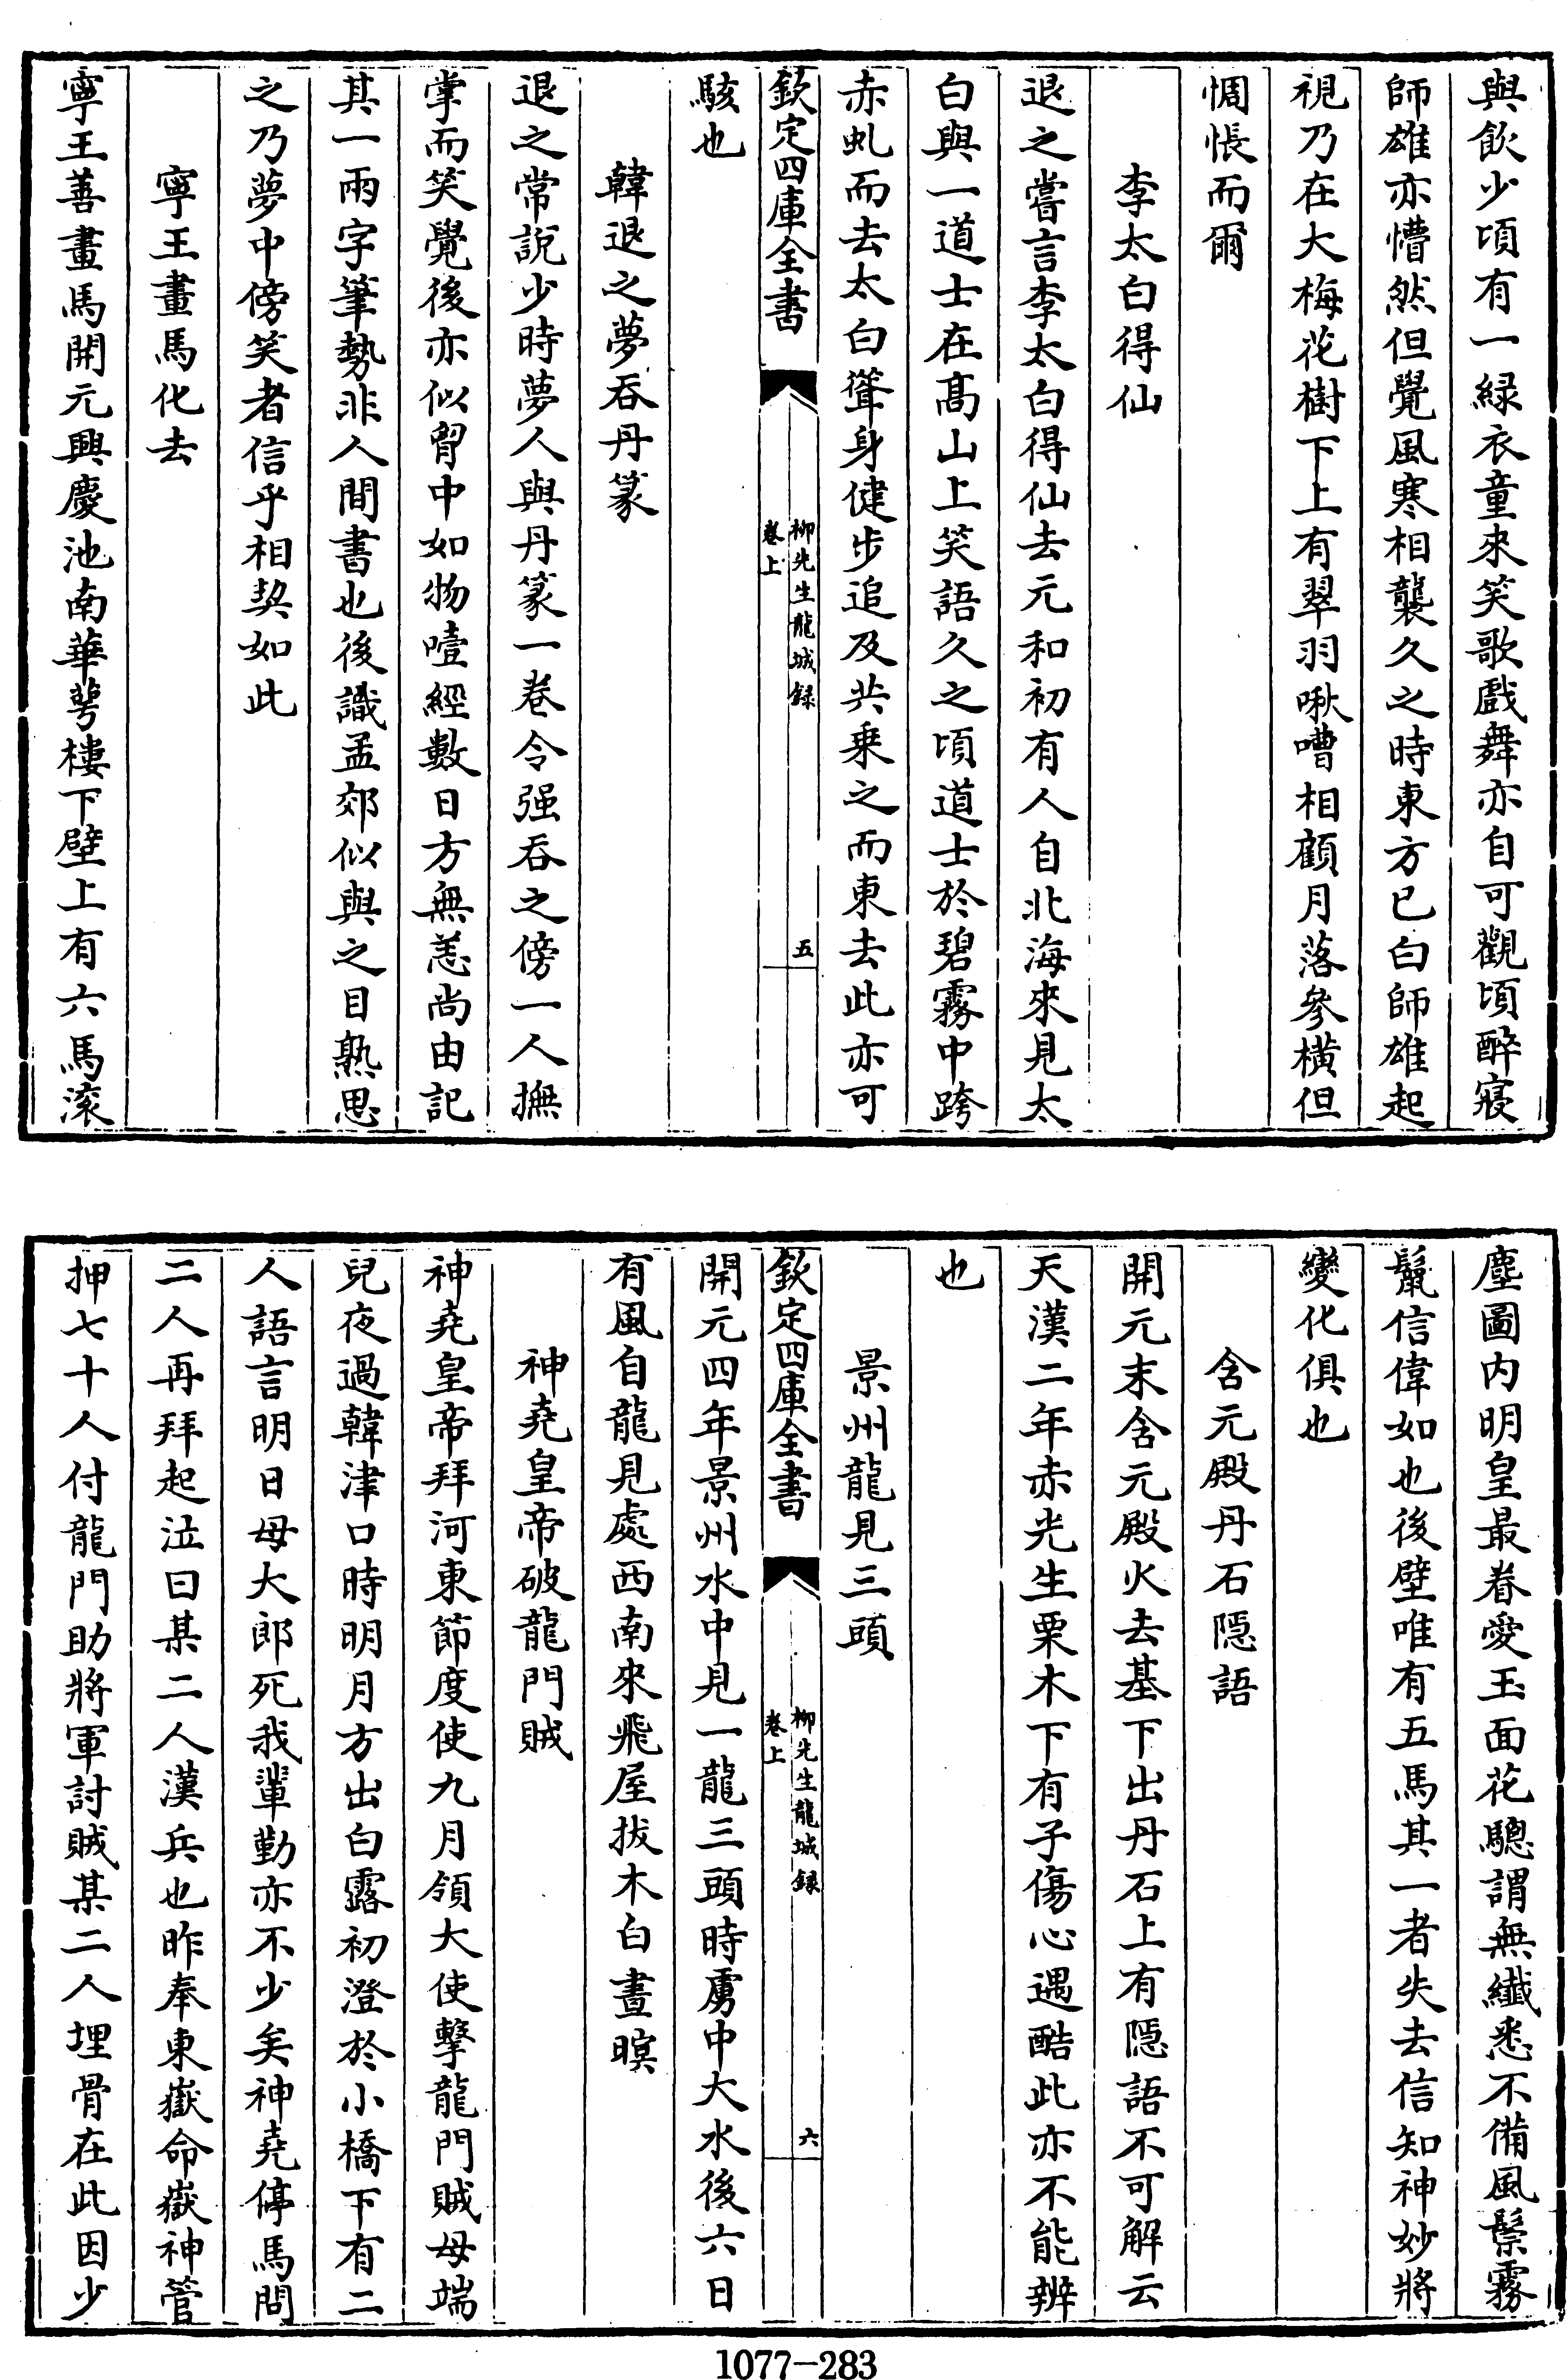 與飲少頃有一緑衣童來笑歌戲舞亦自可觀頃醉寢
師雄亦懵然但覺風寒相襲久之時東方已白師雄起
視乃在大梅花樹下上有翠羽啾嘈相顧月落參横但
惆悵而爾
李太白得仙
退之嘗言李太白得仙去元和初有人自北海來見太
白與一道士在髙山上笑語久之頃道士於碧霧中跨
赤虬而去太白聳身健步追及共乗之而東去此亦可
欽定四庫全書
柳先生龍城録
卷上
五
駭也
韓退之夢吞丹篆
退之常説少時夢人與丹篆一卷令强吞之傍一人撫
掌而笑覺後亦似胷中如物噎經數日方無恙尚由記
其一兩字筆勢非人間書也後識孟郊似與之目熟思
之乃夢中傍笑者信乎相契如此
寧王畫馬化去
寧王善畫馬開元興慶池南華萼樓下壁上有六馬滚
塵圖内明皇最眷愛玉面花驄謂無纎悉不備風鬃霧
鬛信偉如也後壁唯有五馬其一者失去信知神妙將
變化俱也
含元殿丹石隠語
開元末含元殿火去基下出丹石上有隠語不可解云
天漢二年赤光生栗木下有子傷心遇酷此亦不能辨
也
景州龍見三頭
欽定四庫全書
柳先生龍城録
卷上
六
開元四年景州水中見一龍三頭時虜中大水後六日
有風自龍見處西南來飛屋拔木白晝暝
神堯皇帝破龍門賊
神堯皇帝拜河東節度使九月領大使擊龍門賊母端
兒夜過韓津口時明月方出白露初澄於小橋下有二
人語言明日母大郎死我輩勤亦不少矣神堯停馬問
二人再拜起泣曰某二人漢兵也昨奉東嶽命嶽神管
押七十人付龍門助將軍討賊某二人埋骨在此因少
1077-283